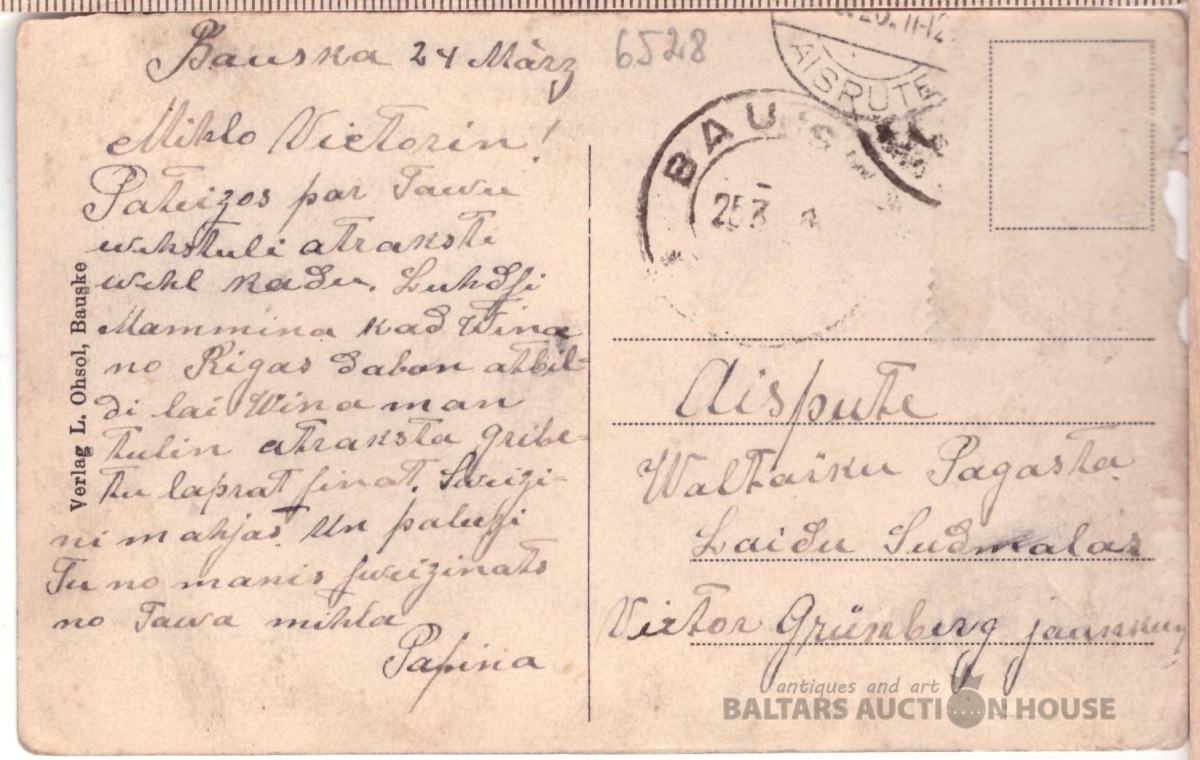 Bauska 24 März
6528
Mihlo Victorin!
Pateizos par Tawu
wehstuli atraksti
wehl kadu. Luhdsi
Mammina kad Wina
no Rigas dabon atbil-
di lai Wina man
tulin atraksta gribe-
tu labprat sinat. Sweizi-
ni mahjas Un paleezi
Tu no manis sweizinats
no Tawa mihla
Papina
Verlag L. Ohsol, Bauske
AISPUTE
BAUS
25 3
Aispute
Waltaiku Pagasta
Laidu Sudmalas
Victor Grünberg jaunkungs
antiques and art
BALTARS AUCTION HOUSE